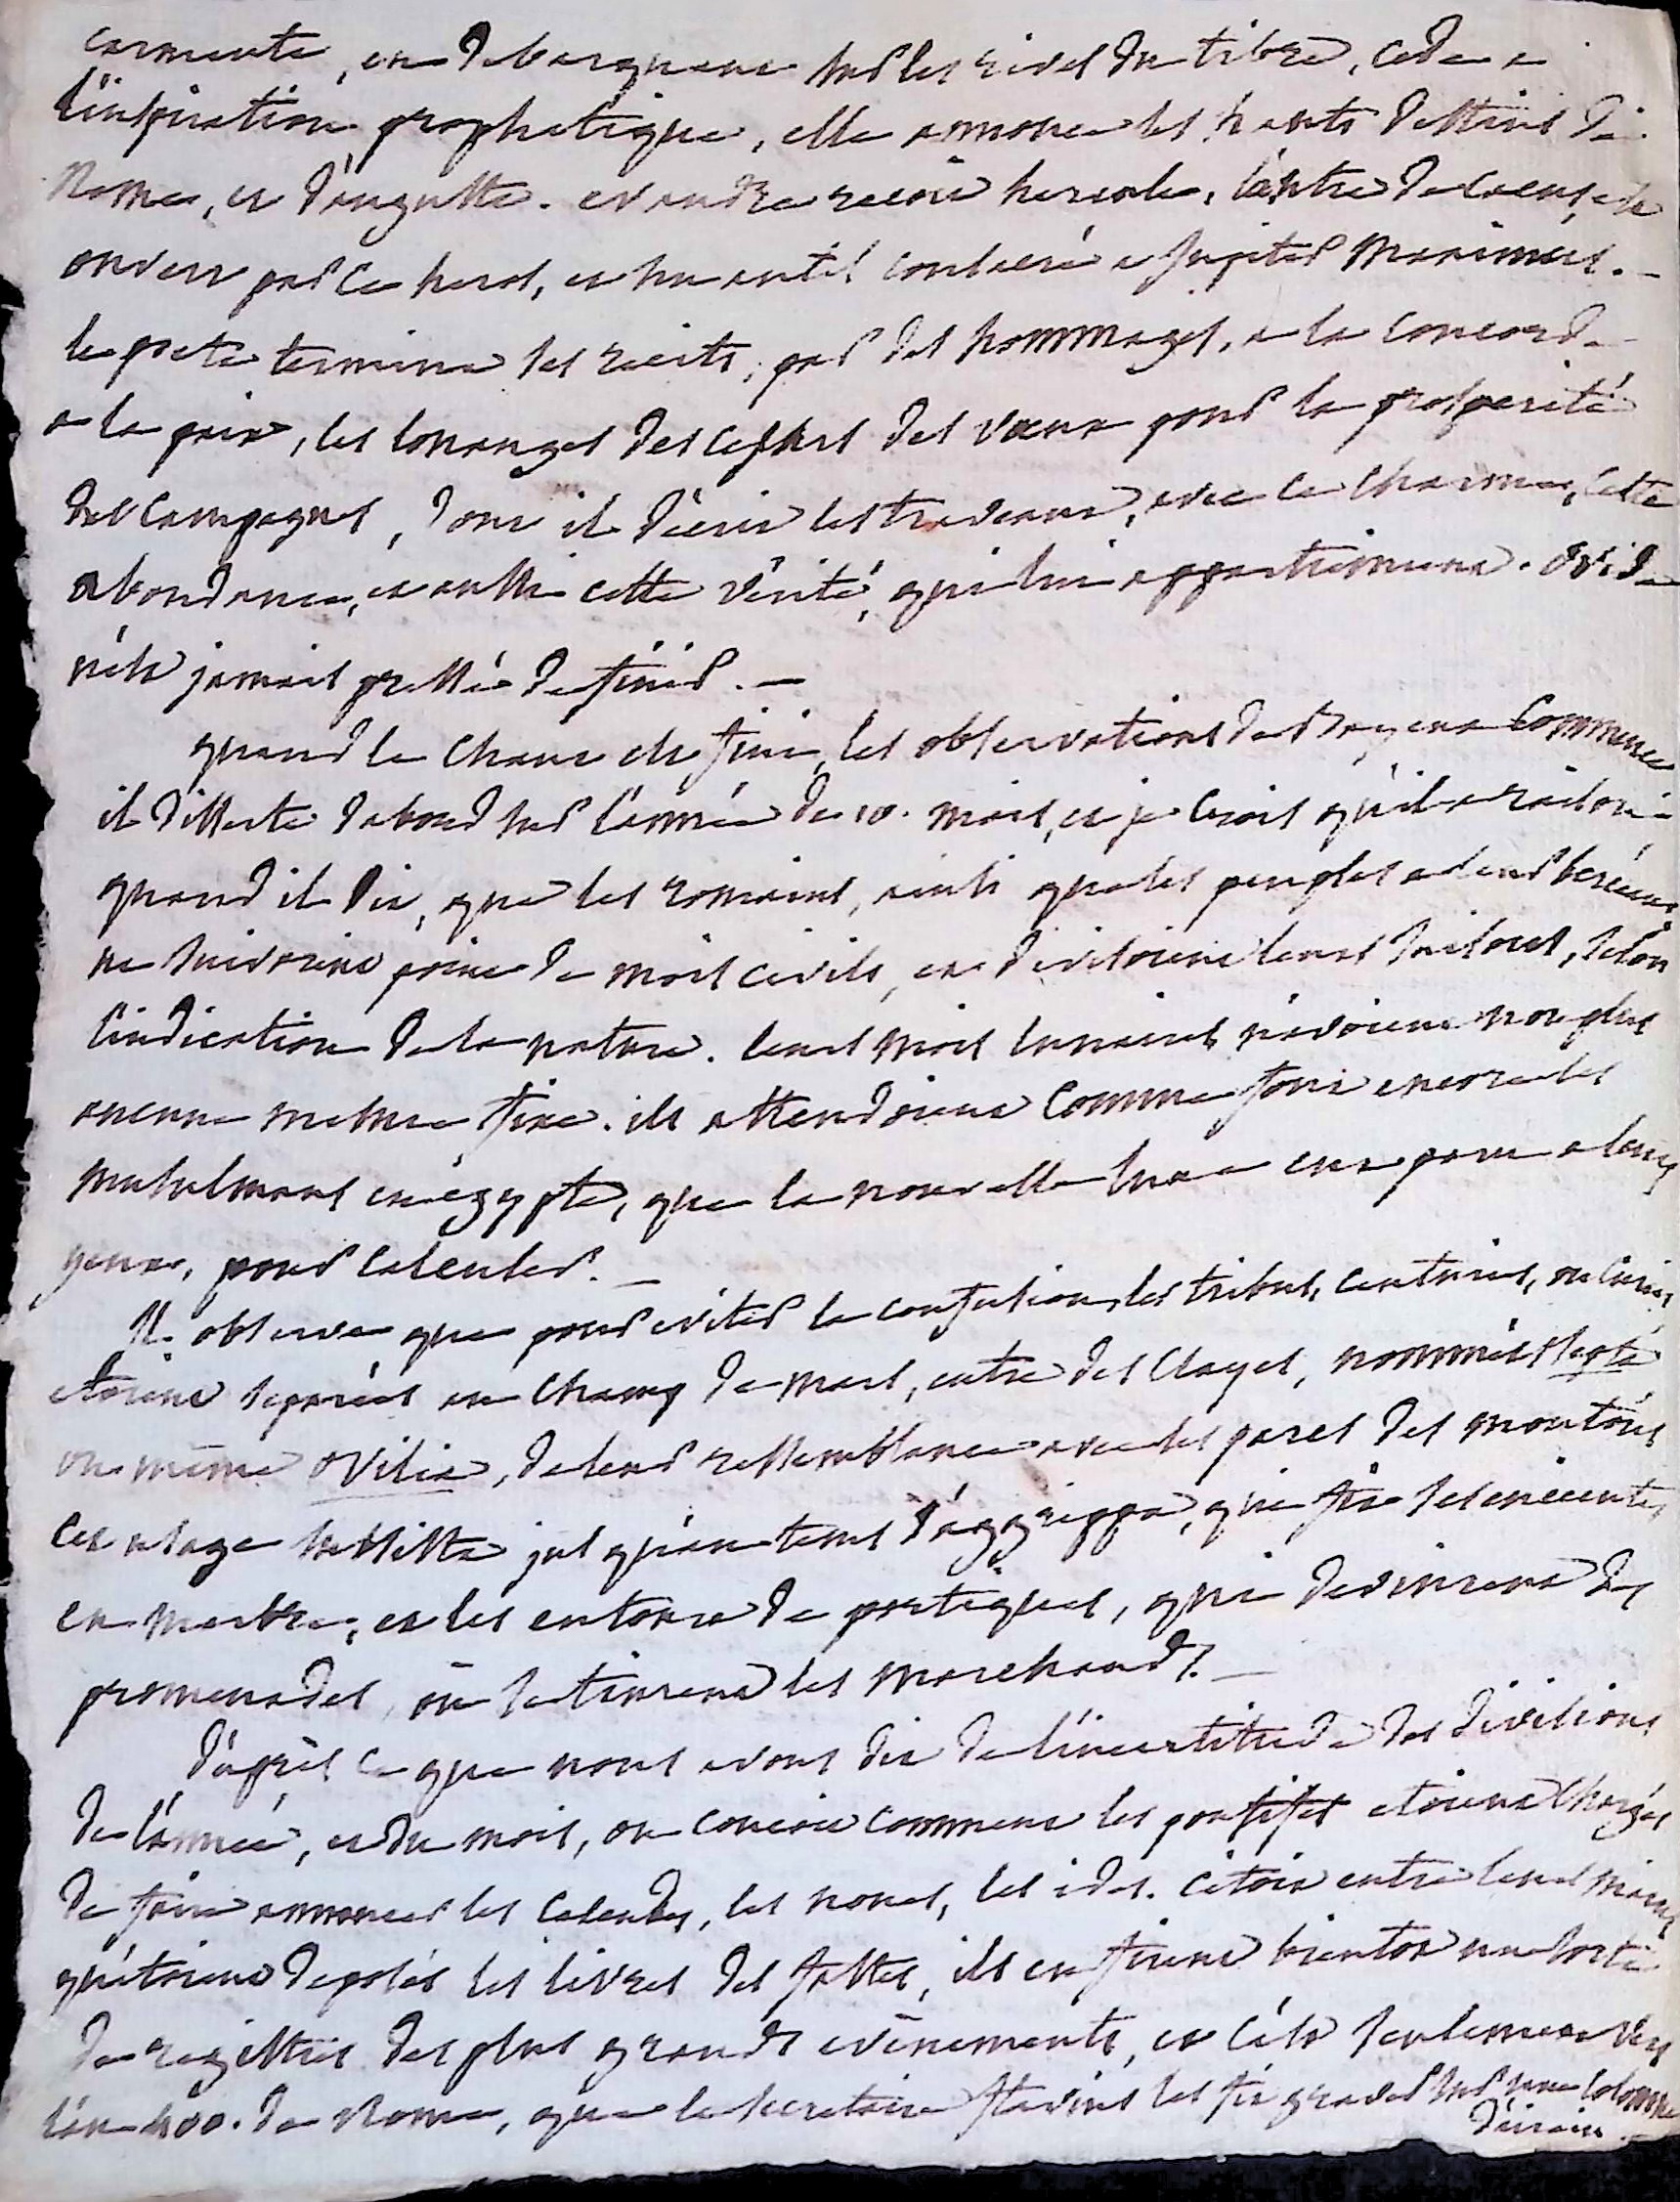 carmente, en debarquant sur les rives du tibre, cede a
l'inspiration prophetique, elle annonce les hauts destins de
Rome, et d'auguste. evandre recoit hercule, l'antre de cacus, est
ouvert par ce heros, et un autel consacré a Jupiter Maximus. –
le poete termine ses recits, par des hommages, a la concorde
a la paix, les louanges des Cesars des vœux pour la prosperité
des campagnes, dont il décrit les travaux, avec ce charme, cette
abondance, et aussi cette vérité, qui lui appartiennent. Ovide
n'est jamais pressé de finir. –
quand le chant est fini, les observations de Bayeux commencent
il disserte d'abord sur l'année de 10. mois, et je crois qu'il a raison
quand il dit, que les romains, ainsi que les peuples a leur berceau,
ne suivoient point de mois civils, et divisoient leurs saisons, selon
l'indication de la nature. leurs mois lunaires n'avoient non plus
aucune mesure fixe. ils attendoient comme font encore les
musulmans en égypte, que la nouvelle lune eut paru a leurs
yeux, pour calculer. –
Il observe que pour eviter la confusion, les tribus, centuries, ou curies,
etoient separées au champ de mars, entre des clayes, nommées septa
ou même ovilia, de leur ressemblance avec les parcs des moutons
cet usage subsista jusqu'au tems d'aggrippa, qui fit ses enceintes
en marbre, et les entoura de portiques, qui devinrent des
promenades, où se tinrent les marchands. –
d'après ce que nous avons dit de l'incertitude des divisions
de l'année, et du mois, on concoit comment les pontifes etoient chargés
de faire annoncer les calendes, les nones, les ides. c'étoit entre leurs mains
qu'étoient deposés les livres des fastes, ils en firent bientot une sorte
de registres des plus grands evènements, et c'est seulement vers
l'an 400. de Rome, que le secretaire flavius les fit graver sur une colonne
d'airain. –